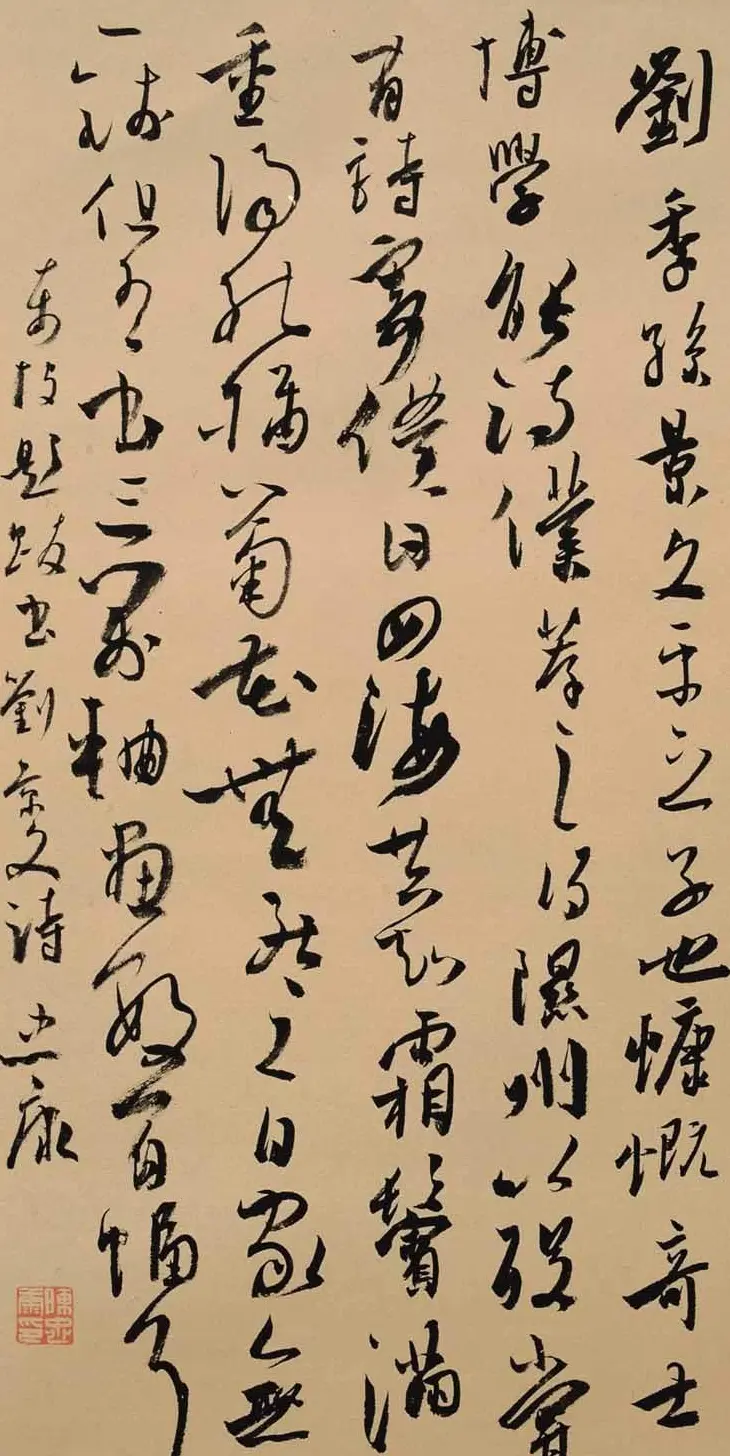 劉季孫景文平之子也慷慨奇士
博學能詩僕薦之得隰州以歿嘗
有詩寄僕曰四海共知霜鬢滿
重陽能插菊花無死之日家無
一錢但有書三萬軸畫數百幅耳
東坡題跋書劉景文詩